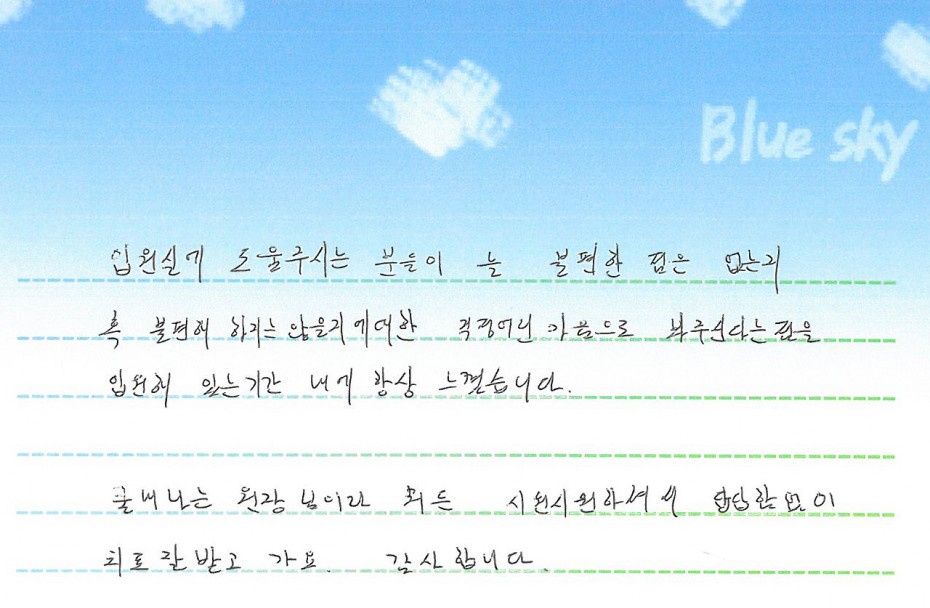 Blue sky
입원실에 도울주시는 분들이 늘 불편한 점은 없는지
혹 불편해 하지는 않을지에대한 걱정어린 마음으로 봐주신다는점을
입원해 있는기간 내게 항상 느꼈습니다.
원장님이라 뭐든 시원시원하셔서 답답함없이
치료 잘받고 가요. 감사합니다.